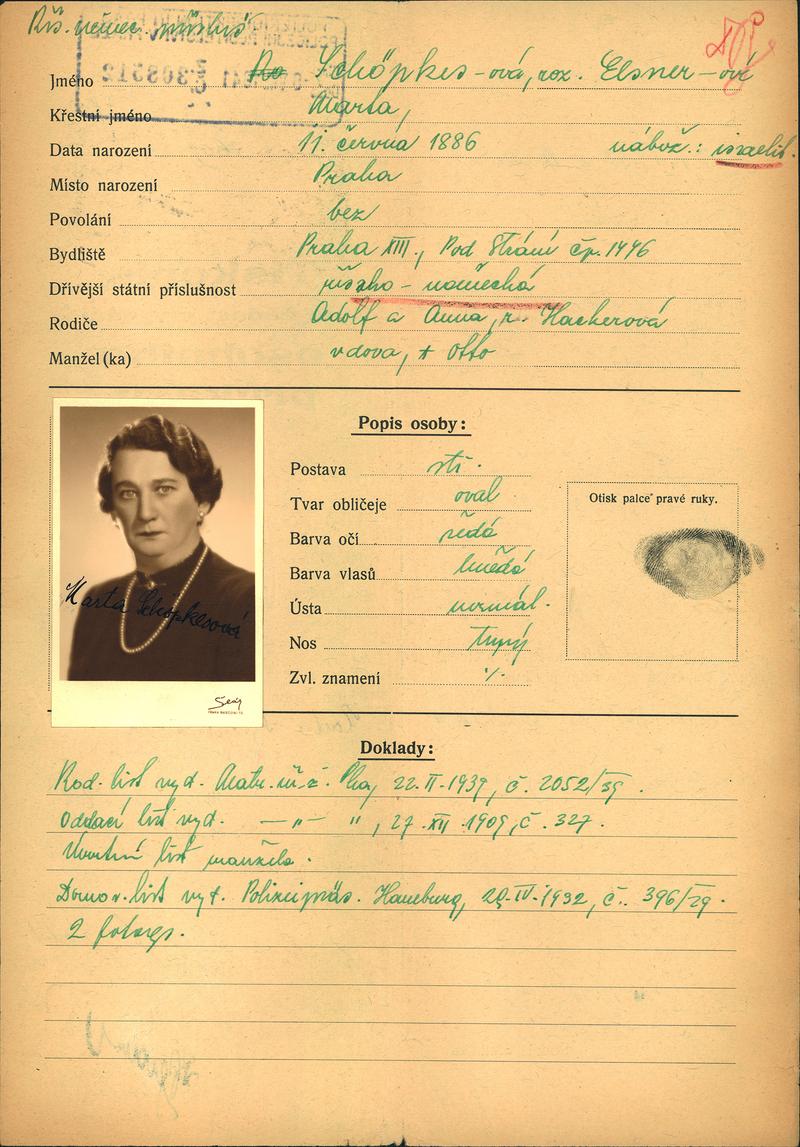 Říš. němec. přísluš.
308512
Jméno Schöpkes-ová, roz. Elsner-ová
Křestní jméno Marta,
Data narození 11. června 1886 nábož.: israelit.
Místo narození Praha
Povolání bez
Bydliště Praha XIII., Pod Strání čp. 1446
Dřívější státní příslušnost říšsko-německá
Rodiče Adolf a Anna, r. Hackerová
Manžel(ka) vdova, + Otto
Popis osoby:
Postava stř.
Tvar obličeje oval
Barva očí šedá
Barva vlasů hnědá
Ústa normál.
Nos tupý
Zvl. znamení ./.
Otisk palce pravé ruky.
Marta Schöpkesová
Doklady:
Rod. list vyd. Matr. ú. ž. Pha, 22.II.1939, č. 2052/39.
Oddací list vyd. —„— „, 27.XII.1909, č. 327.
Úmrtní list manžela.
Domov. list vyd. Policipräs. Hamburg, 20.IV.1932, č. 396/29.
2 fotogr.